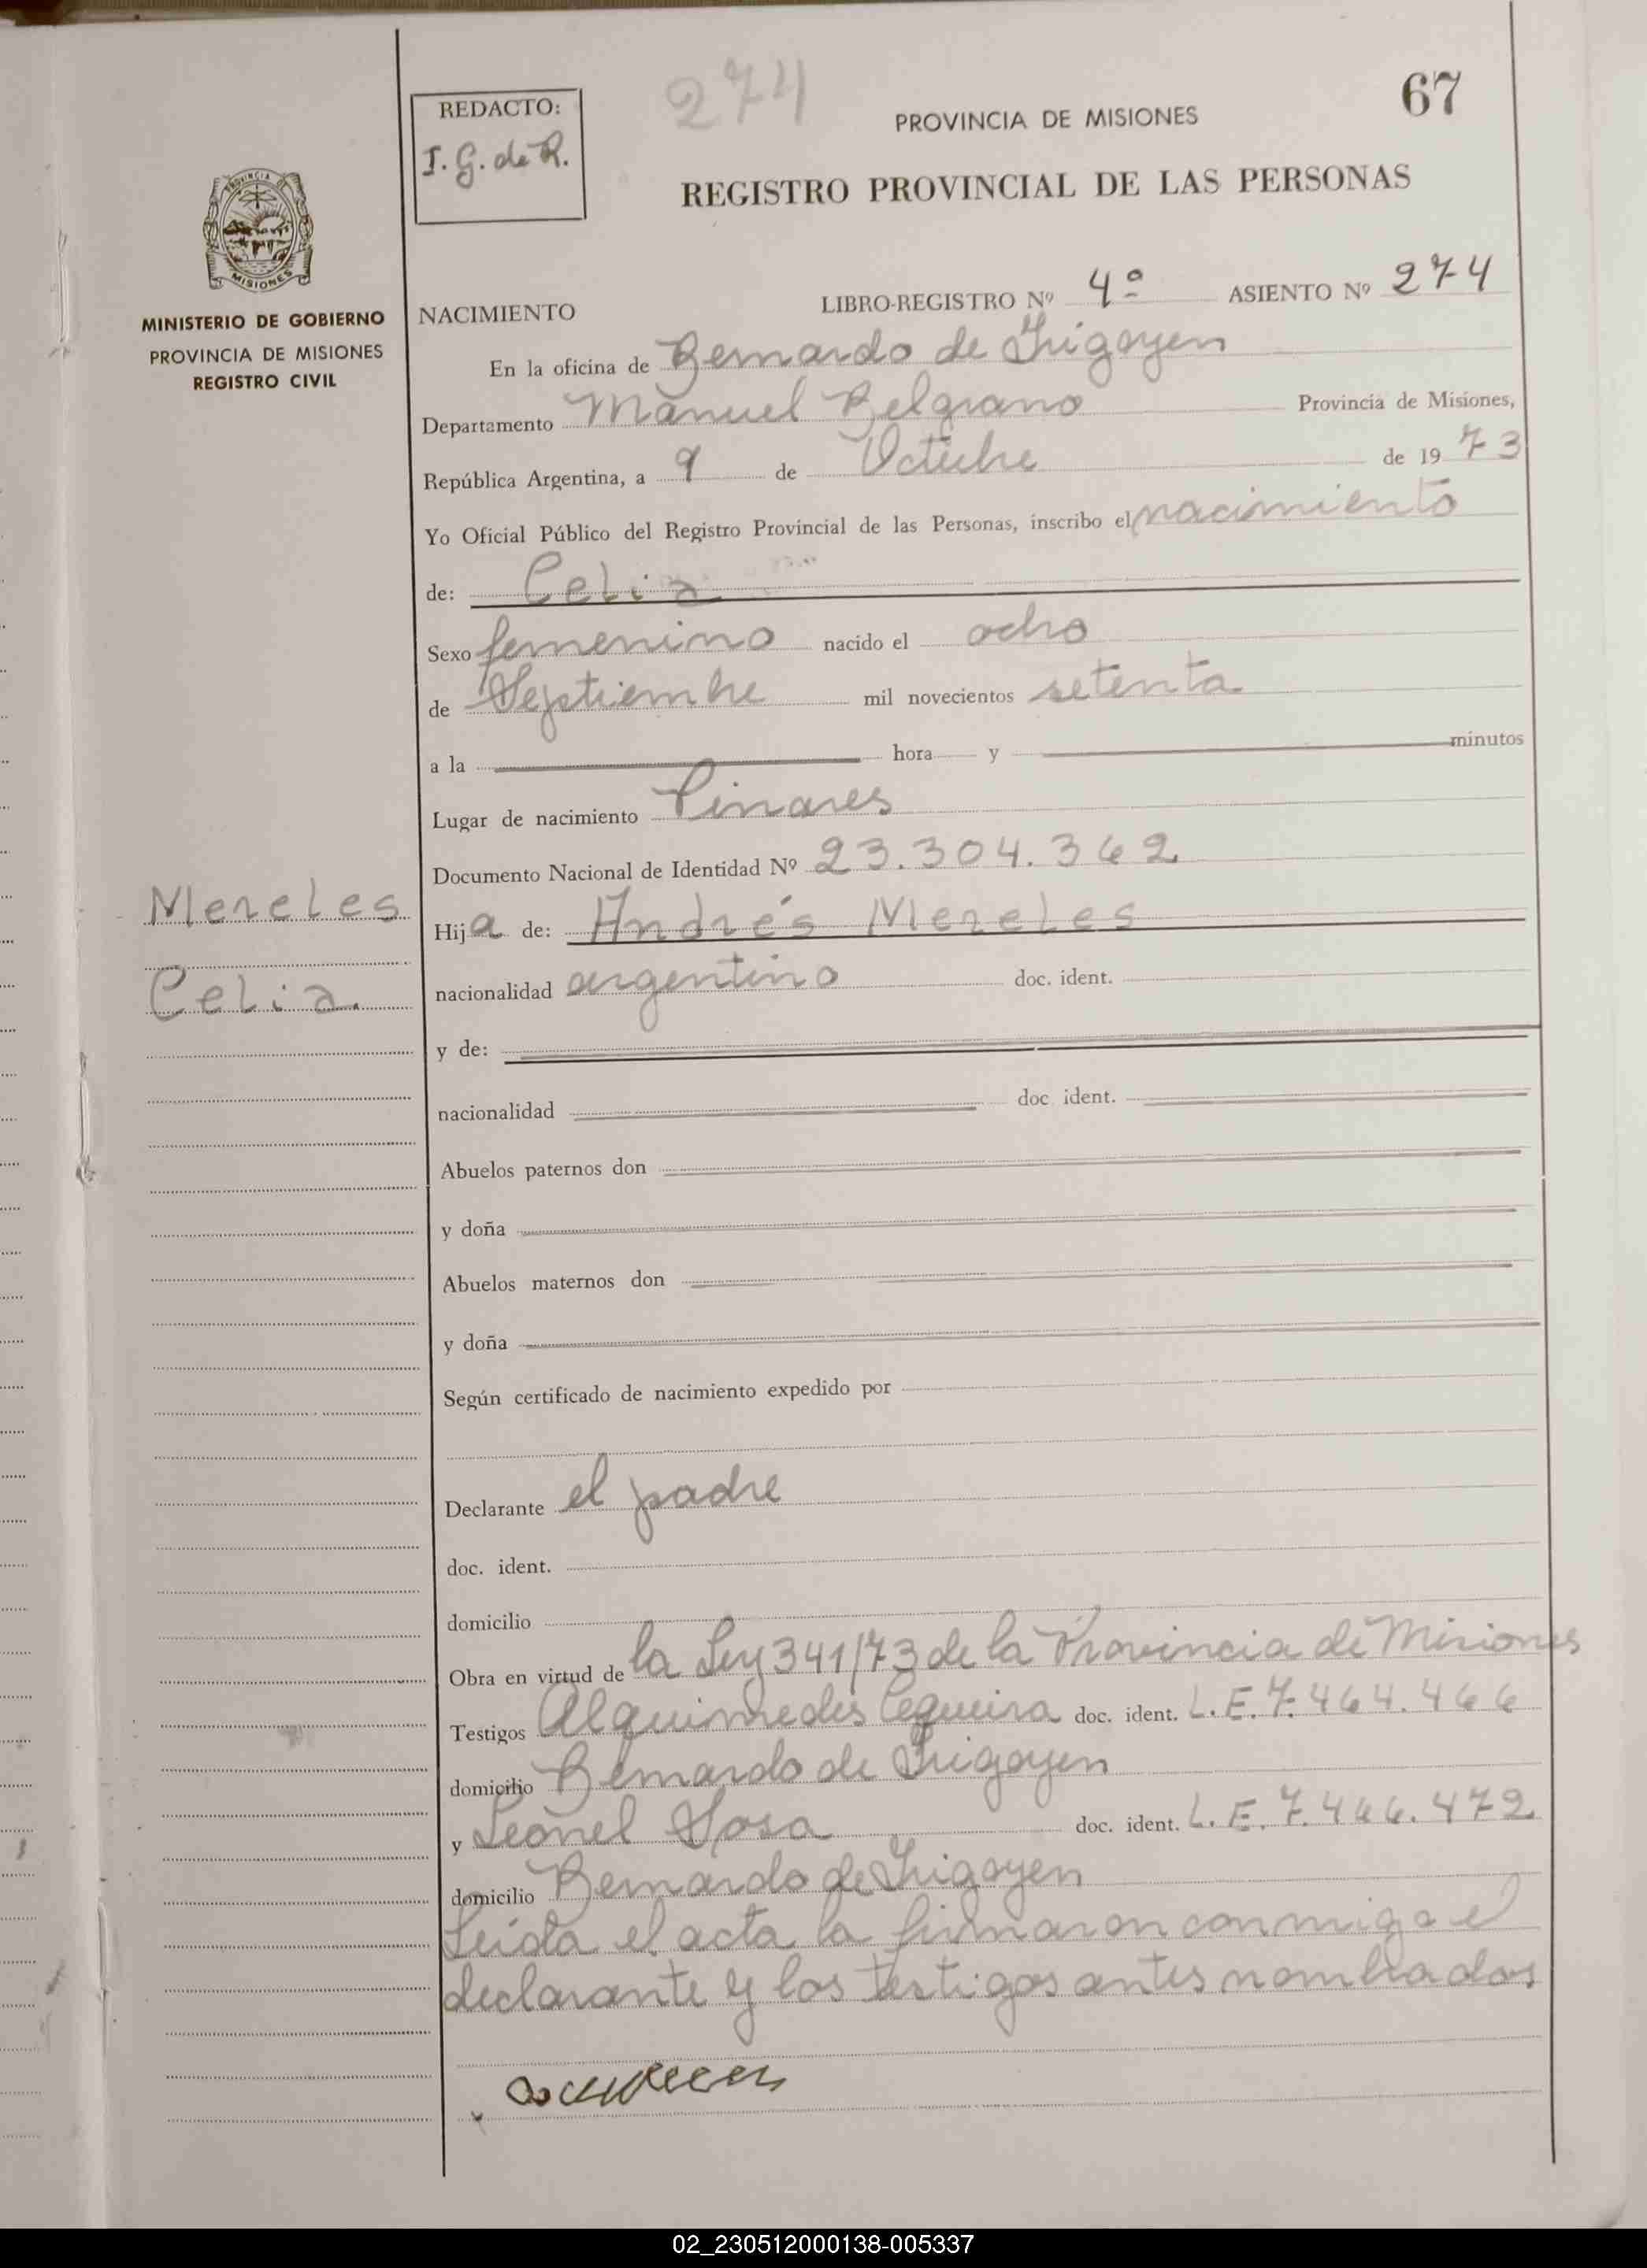 274
67
REDACTO:
I. G. de R.
PROVINCIA DE MISIONES
REGISTRO PROVINCIAL DE LAS PERSONAS
PROVINCIA DE
MISIONES
MINISTERIO DE GOBIERNO
PROVINCIA DE MISIONES
REGISTRO CIVIL
NACIMIENTO LIBRO-REGISTRO Nº 4º ASIENTO Nº 274
En la oficina de Bernardo de Irigoyen
Departamento Manuel Belgrano Provincia de Misiones,
República Argentina, a 9 de Octubre de 1973
Yo Oficial Público del Registro Provincial de las Personas, inscribo el nacimiento
de: Celia
Sexo femenino nacido el ocho
de Septiembre mil novecientos setenta
a la hora y minutos
Lugar de nacimiento Pinares
Documento Nacional de Identidad Nº 23.304.362
Mereles
Hija de: Andrés Mereles
Celia
nacionalidad argentino doc. ident.
y de:
nacionalidad doc ident.
Abuelos paternos don
y doña
Abuelos maternos don
y doña
Según certificado de nacimiento expedido por
Declarante el padre
doc. ident.
domicilio
Obra en virtud de la Ley 341/73 de la Provincia de Misiones
Testigos Alquimedes Cequeira doc. ident. L.E. 7.464.466
domicilio Bernardo de Irigoyen
y Leonel Sosa doc. ident. L.E. 7.466.472
domicilio Bernardo de Irigoyen
Leída el acta la firmaron conmigo el
declarante y los testigos antes nombrados
02_230512000138-005337